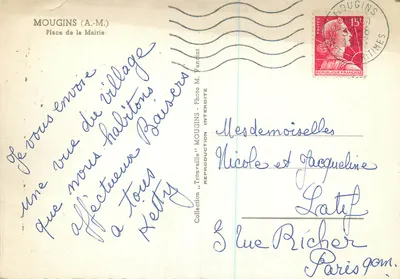 MOUGINS (A.-M.)
Place de la Mairie
Je vous envoie
une vue du village
que nous habitons
affectueux Baisers
a tous
Ketty
Collection „Tritavaille" MOUGINS - Photo M.
REPRODUCTION INTERDITE
MOUGINS
POSTES
15F
REPUBLIQUE FRANÇAISE
Mesdemoiselles
Nicole et Jacqueline
Latif
5 Rue Richer
Paris 9em.